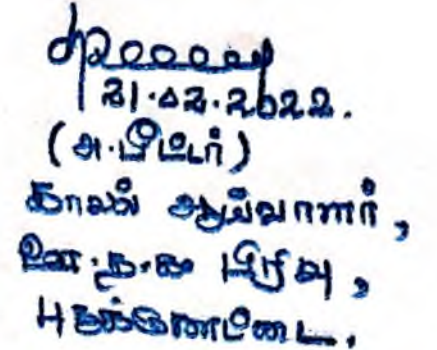 21.02.2022.
(அ.பீட்டர்)
காவல் ஆய்வாளர்,
ஊ.த.க பிரிவு,
புதுக்கோட்டை.